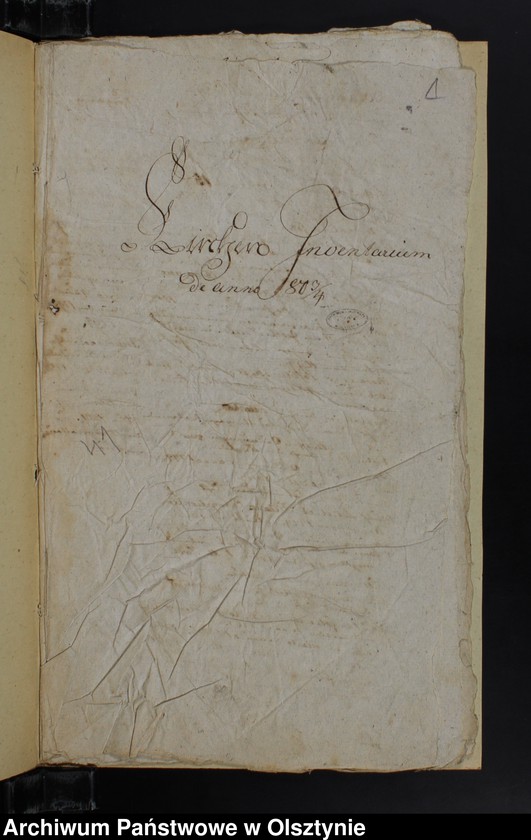 1
Kirchen Inventarium
de anno 1803/4
Archiwum Państwowe w Olsztynie